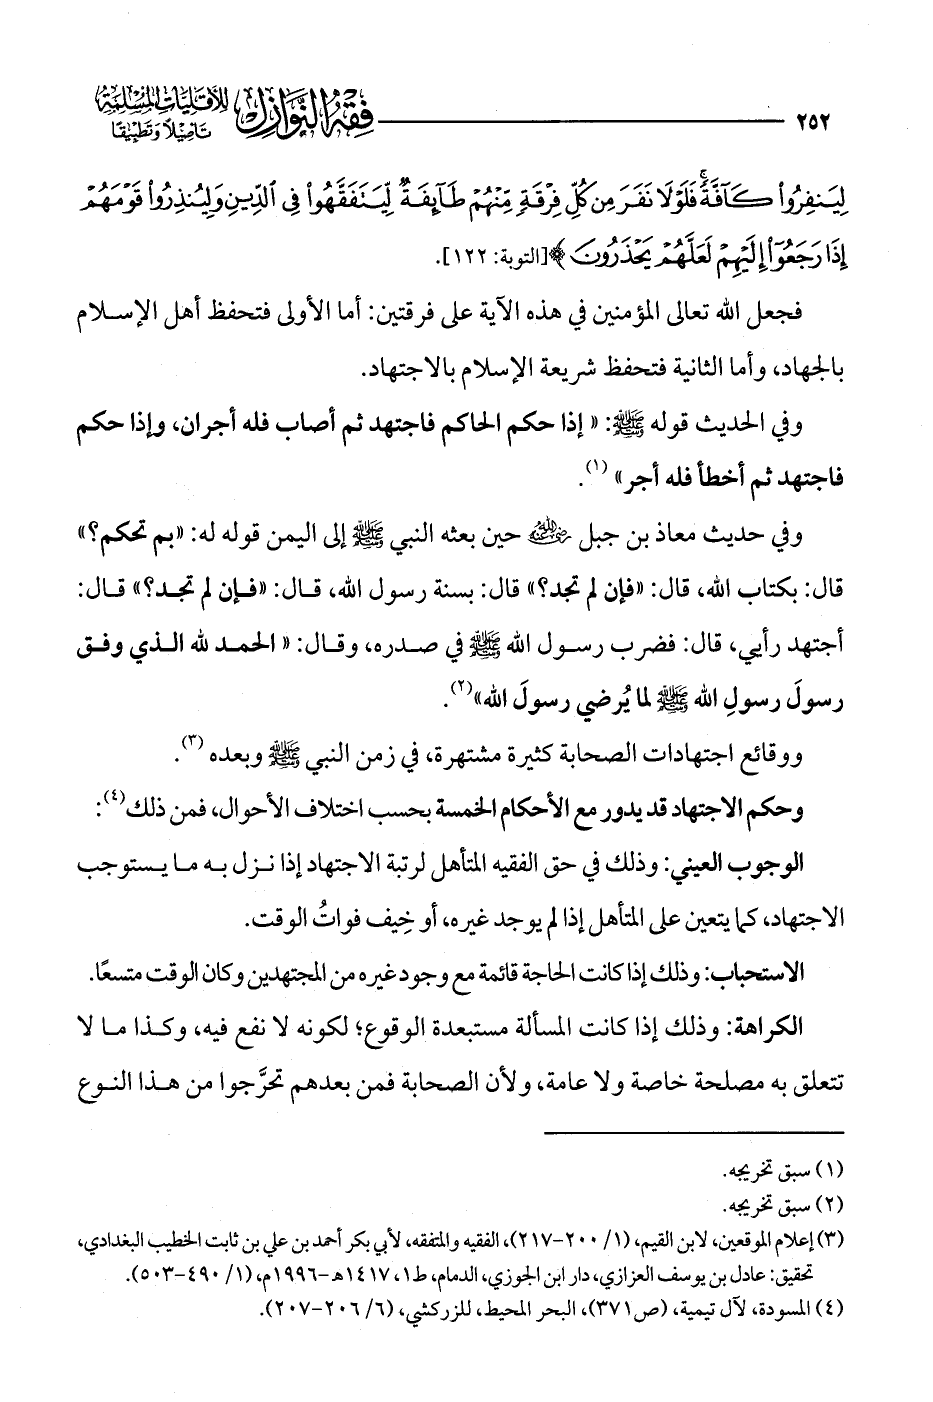 ٢٥٢
فقه النوازل للأقليات المسلمة
تأصيلاً وتطبيقًا
لِيَنفِرُوا۟ كَآفَّةً ۚ فَلَوْلَا نَفَرَ مِن كُلِّ فِرْقَةٍ مِّنْهُمْ طَآئِفَةٌ لِّيَتَفَقَّهُوا۟ فِى ٱلدِّينِ وَلِيُنذِرُوا۟ قَوْمَهُمْ
إِذَا رَجَعُوٓا۟ إِلَيْهِمْ لَعَلَّهُمْ يَحْذَرُونَ ﴾ [التوبة: ١٢٢].
فجعل الله تعالى المؤمنين في هذه الآية على فرقتين: أما الأولى فتحفظ أهل الإسلام
بالجهاد، وأما الثانية فتحفظ شريعة الإسلام بالاجتهاد.
وفي الحديث قوله ﷺ: « إذا حكم الحاكم فاجتهد ثم أصاب فله أجران، وإذا حكم
فاجتهد ثم أخطأ فله أجر» (١).
وفي حديث معاذ بن جبل رضي الله عنه حين بعثه النبي ﷺ إلى اليمن قوله له: «بم تحكم؟»
قال: بكتاب الله، قال: «فإن لم تجد؟» قال: بسنة رسول الله، قال: «فإن لم تجد؟» قال:
أجتهد رأيي، قال: فضرب رسول الله ﷺ في صدره، وقال: « الحمد لله الذي وفق
رسولَ رسولِ الله ﷺ لما يُرضي رسولَ الله»(٢).
ووقائع اجتهادات الصحابة كثيرة مشتهرة، في زمن النبي ﷺ وبعده (٣).
وحكم الاجتهاد قد يدور مع الأحكام الخمسة بحسب اختلاف الأحوال، فمن ذلك(٤):
الوجوب العيني: وذلك في حق الفقيه المتأهل لرتبة الاجتهاد إذا نزل به ما يستوجب
الاجتهاد، كما يتعين على المتأهل إذا لم يوجد غيره، أو خِيف فواتُ الوقت.
الاستحباب: وذلك إذا كانت الحاجة قائمة مع وجود غيره من المجتهدين وكان الوقت متسعًا.
الكراهة: وذلك إذا كانت المسألة مستبعدة الوقوع؛ لكونه لا نفع فيه، وكذا ما لا
تتعلق به مصلحة خاصة ولا عامة، ولأن الصحابة فمن بعدهم تحرَّجوا من هذا النوع
(١) سبق تخريجه.
(٢) سبق تخريجه.
(٣) إعلام الموقعين، لابن القيم، (١/ ٢٠٠-٢١٧)، الفقيه والمتفقه، لأبي بكر أحمد بن علي بن ثابت الخطيب البغدادي،
تحقيق: عادل بن يوسف العزازي، دار ابن الجوزي، الدمام، ط١، ١٤١٧هـ-١٩٩٦م، (١/ ٤٩٠-٥٠٣).
(٤) المسودة، لآل تيمية، (ص٣٧١)، البحر المحيط، للزركشي، (٦/ ٢٠٦-٢٠٧).